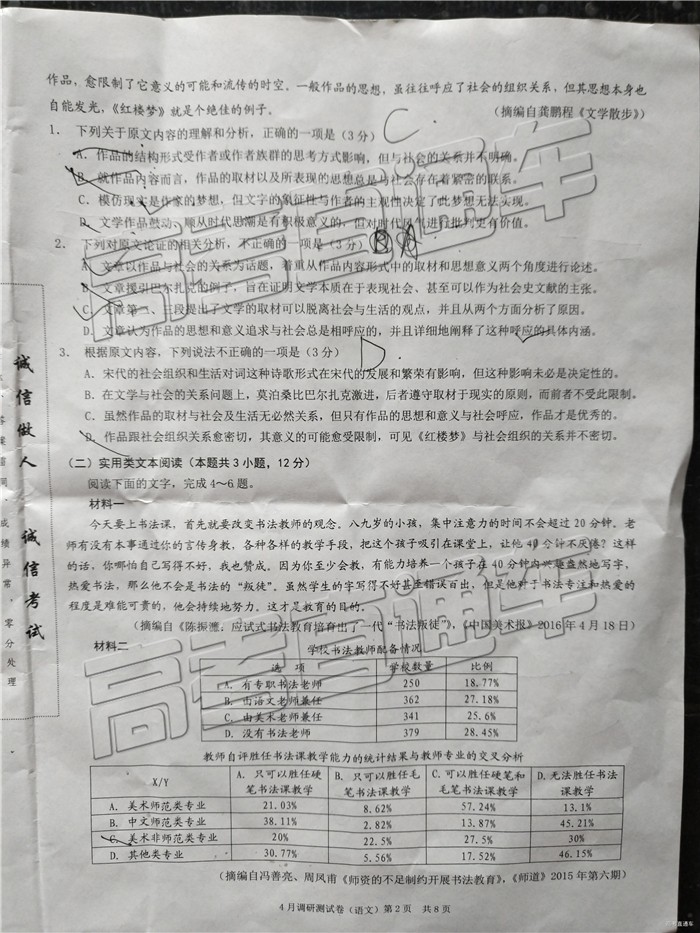 作品，愈限制了它意义的可能和流传的时空。一般作品的思想，虽往往呼应了社会的组织关系，但其思想本身也
自能发光，《红楼梦》就是个绝佳的例子。
（摘编自龚鹏程《文学散步》）
1. 下列关于原文内容的理解和分析，正确的一项是（3分）
C
A．作品的结构形式受作者或作者族群的思考方式影响，但与社会的关系并不明确。
B．就作品内容而言，作品的取材以及所表现的思想总是与社会存在着紧密的联系。
C．模仿现实是作家的梦想，但文字的象征性与作者的主观性决定了此梦想无法实现。
D．文学作品鼓动、顺从时代思潮是有积极意义的，但对时代风气进行批判更有价值。
2. 下列对原文论证的相关分析，不正确的一项是（3分）
A．文章以作品与社会的关系为话题，着重从作品内容形式中的取材和思想意义两个角度进行论述。
B．文章援引巴尔扎克的例子，旨在证明文学本质在于表现社会、甚至可以作为社会史文献的主张。
C．文章第二、三段提出了文学的取材可以脱离社会与生活的观点，并且从两个方面分析了原因。
D．文章认为作品的思想和意义追求与社会总是相呼应的，并且详细地阐释了这种呼应的具体内涵。
3. 根据原文内容，下列说法不正确的一项是（3分）
D
A．宋代的社会组织和生活对词这种诗歌形式在宋代的发展和繁荣有影响，但这种影响未必是决定性的。
B．在文学与社会的关系问题上，莫泊桑比巴尔扎克激进，后者遵守取材于现实的原则，而前者不受此限制。
C．虽然作品的取材与社会及生活无必然关系，但只有作品的思想和意义与社会呼应，作品才是优秀的。
D．作品跟社会组织关系愈密切，其意义的可能愈受限制，可见《红楼梦》与社会组织的关系并不密切。
（二）实用类文本阅读（本题共3小题，12分）
阅读下面的文字，完成4～6题。
材料一
今天要上书法课，首先就要改变书法教师的观念。八九岁的小孩，集中注意力的时间不会超过20分钟。老
师有没有本事通过你的言传身教，各种各样的教学手段，把这个孩子吸引在课堂上，让他40分钟不厌倦？这样
的话，你哪怕自己写得不好，我也赞成。因为你至少会教，有能力培养一个孩子在40分钟内兴趣盎然地写字，
热爱书法，那么他不会是书法的“叛徒”。虽然学生的字写得不好甚至错误百出，但是他对于书法专注和热爱的
程度是难能可贵的，他会持续地努力。这才是教育的目的。
（摘编自《陈振濂：应试式书法教育培育出了一代“书法叛徒”》，《中国美术报》2016年4月18日）
材料二
学校书法教师配备情况
选 项 学校数量 比例
A．有专职书法老师 250 18.77%
B．由语文老师兼任 362 27.18%
C．由美术老师兼任 341 25.6%
D．没有书法老师 379 28.45%
教师自评胜任书法课教学能力的统计结果与教师专业的交叉分析
X/Y A．只可以胜任硬笔书法课教学 B．只可以胜任毛笔书法课教学 C．可以胜任硬笔和毛笔书法课教学 D．无法胜任书法课教学
A．美术师范类专业 21.03% 8.62% 57.24% 13.1%
B．中文师范类专业 38.11% 2.82% 13.87% 45.21%
C．美术非师范类专业 20% 22.5% 27.5% 30%
D．其他类专业 30.77% 5.56% 17.52% 46.15%
（摘编自冯善亮、周凤甫《师资的不足制约开展书法教育》，《师道》2015年第六期）
4月调研测试卷（语文）第2页 共8页
诚信做人 诚信考试
成绩异常，零分处理
高考直通车
高考直通车